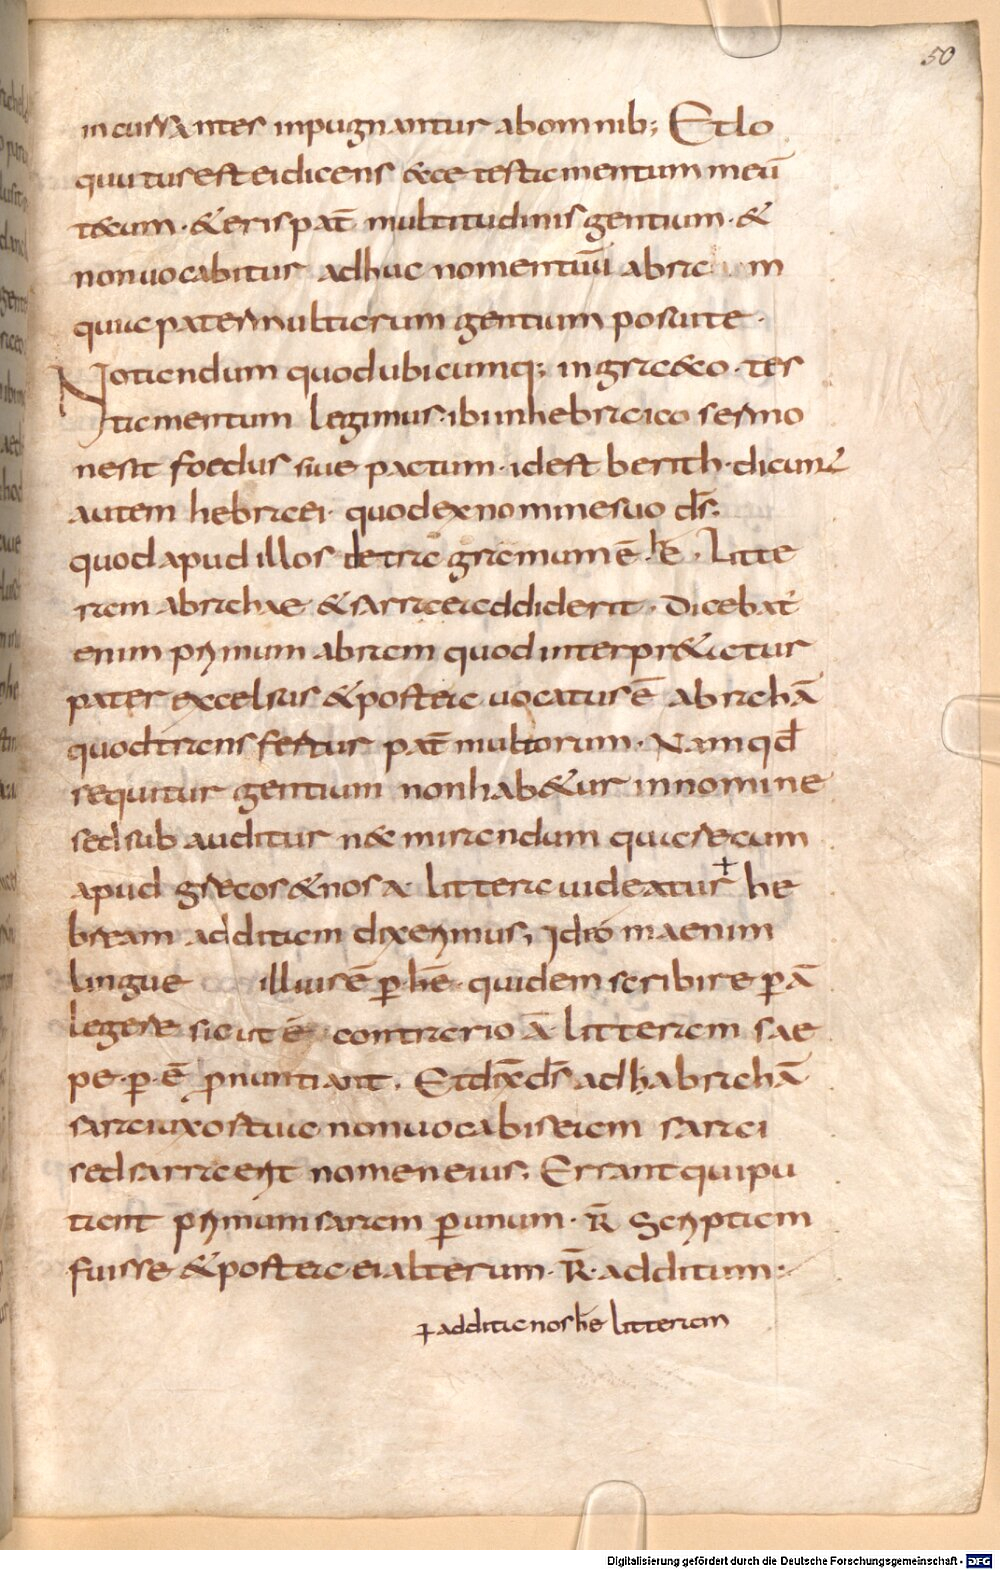 50
incursantes inpugnantur abomnib; Et lo
quutus est ei dicens ecce testamentum meū
tecum · & eris pat̄ multitudinis gentium · &
non uocabitur adhuc nomen tuū abra m
quia patermultarum gentium posui te ·
Notandum quod ubicumq; in graeco · tes
tamentum legimus · ibi in hebraico sermo
ne sit foedus siue pactum · id est berith · dicunt
autem hebraei quod ex nomine suo d̄s;
quod apud illos tetragramum ē · he · litte
ram abrahae & sarrae addiderit · Dicebat̄
enim primum abram quod interpr&atur
pater excelsus & postea uocatus ē abrahā
quod transfertur pat̄ multorum · Nam qd̄
sequitur gentium non hab&ur in nomine
sed sub auditur nec mirandum quare cum
apud grecos & nos a littera uideatur + he
bream additam diximus, Ideo ma enim
lingue illius ē p̱ hē · quidem scribire p̱ ā
legere sicut ē contrario ā litteram sae
pe · p̱ · ē pronuntiant, Et dix̄ d̄s ad habrahā
sarai uxor tua non uocabis eam sarai
sed sarra erit nomen eius, Errant qui pu
tant primum saram p̱ unum · R̄ Scriptam
fuisse & postea ei alterum · R̄ · additum :
+ addita nos he litteram
Digitalisierung gefördert durch die Deutsche Forschungsgemeinschaft - DFG